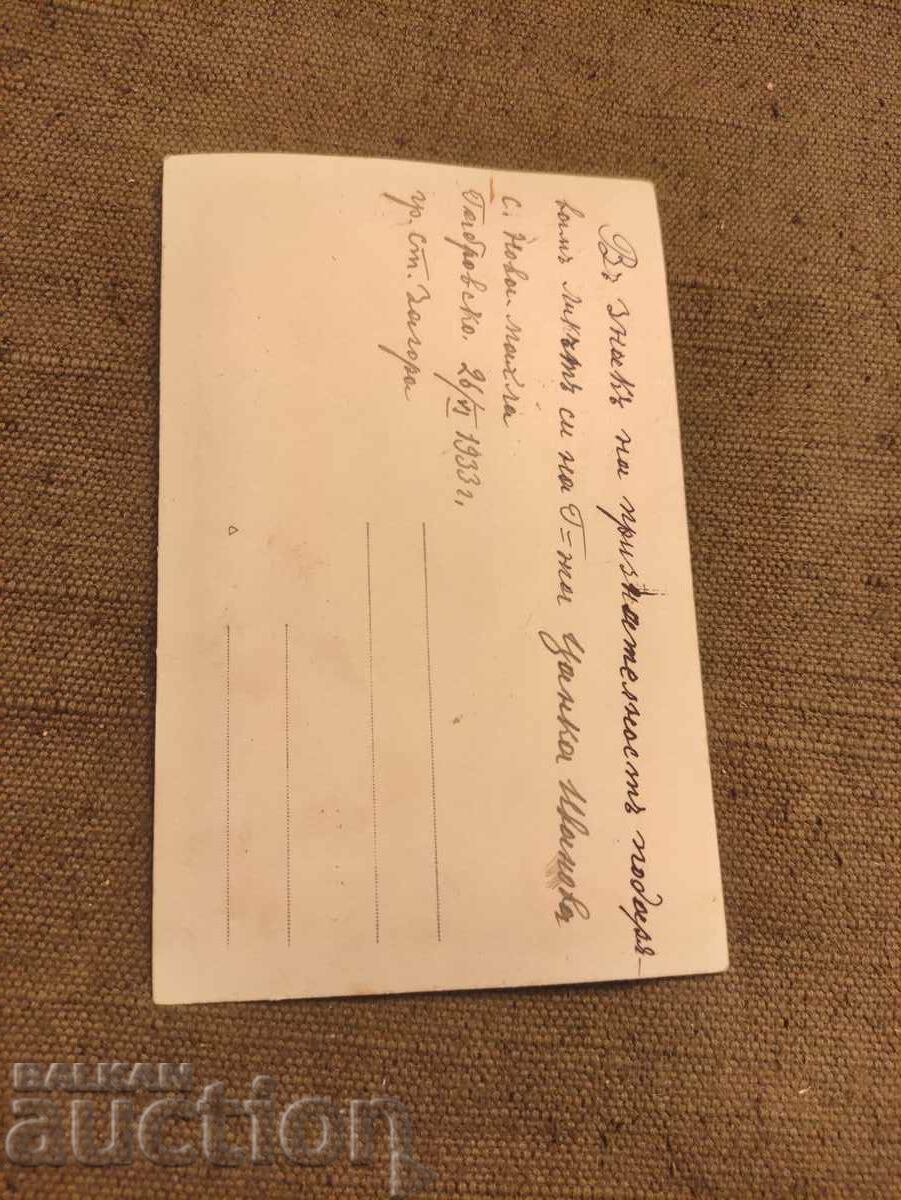 Въ знакъ на признателность подаря–
вамъ ликътъ си на Г=жа Цанка Иванова
с. Нова махла
Габровско. 26/VI 1933 г.
гр. Ст. Загора
BALKAN
auction